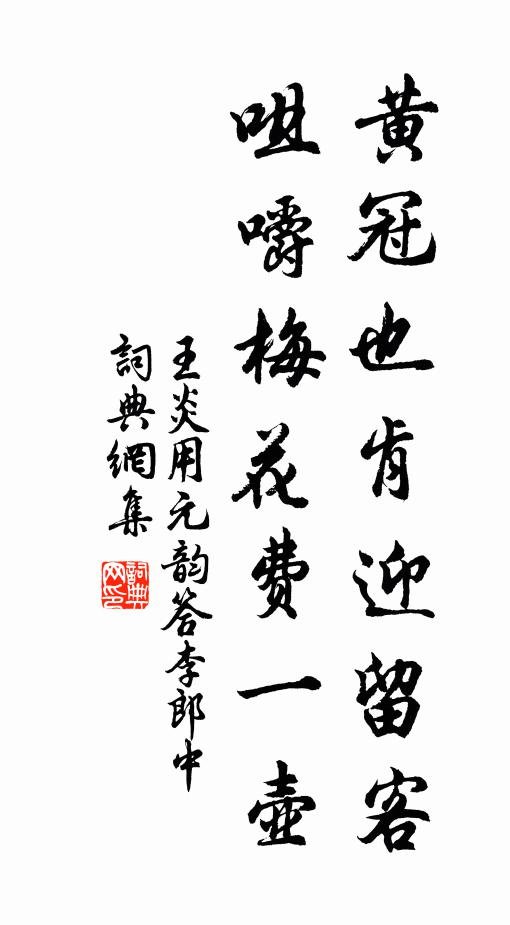 黃冠也肯迎留客
咀嚼梅花費一壺
王炎用元韵答李郎中
詞典網集
詞典网印